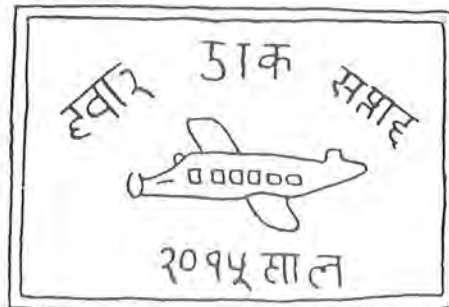 हवार डाक सप्ताह
२०१५ साल